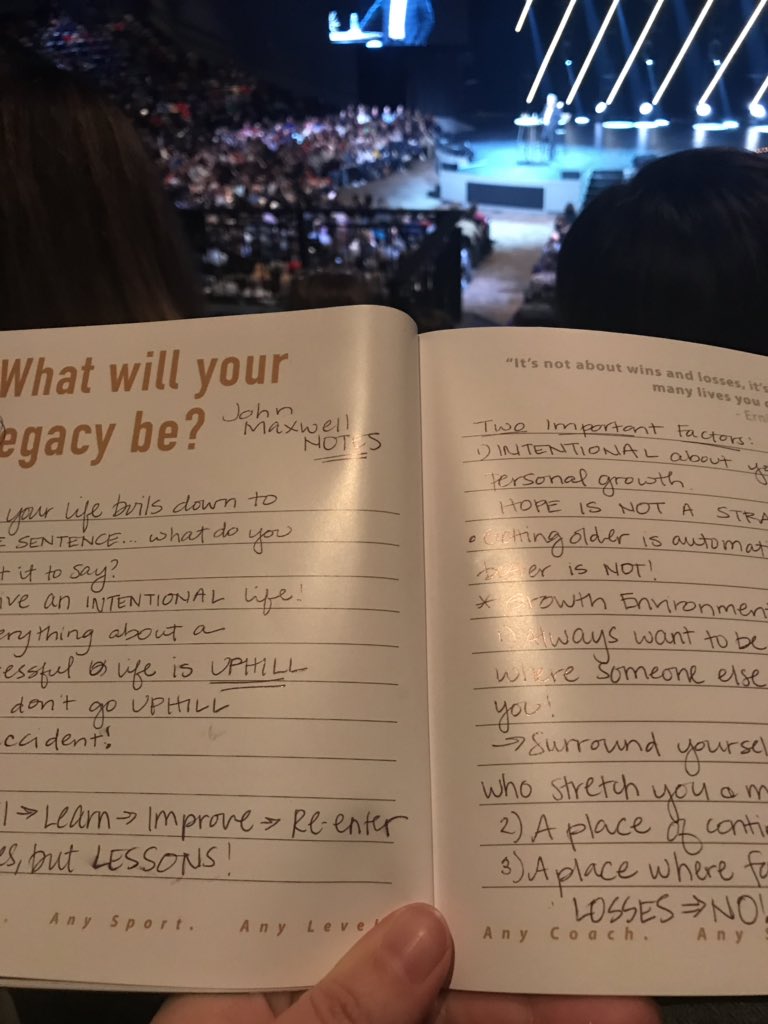 What will your
egacy be?
John
Maxwell
NOTES
your life boils down to
E SENTENCE... what do you
t it to say?
ive an INTENTIONAL life!
erything about a
essful life is UPHILL
don't go UPHILL
ccident!
l → Learn → Improve → Re-enter
es, but LESSONS!
. Any Sport. Any Level
"It's not about wins and losses, it's
many lives you
- Erni
Two Important Factors:
1) INTENTIONAL about yo
personal growth.
HOPE IS NOT A STRA
• Getting older is automat
better is NOT!
* Growth Environment
1) Always want to be
where someone else
you!
→ Surround yoursel
who stretch you & m
2) A place of conti
3) A place where fa
LOSSES ⇒ NO!
Any Coach. Any S